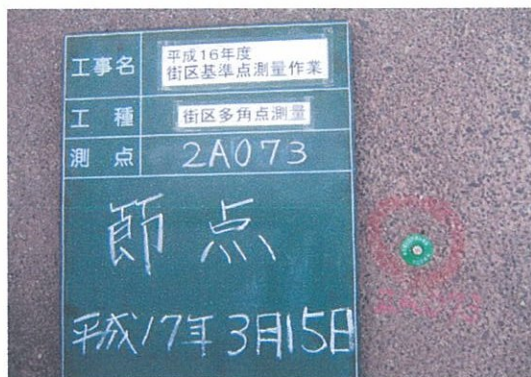 工事名
平成16年度
街区基準点測量作業
工種
街区多角点測量
測点
2A073
節点
平成17年3月15日
2A073